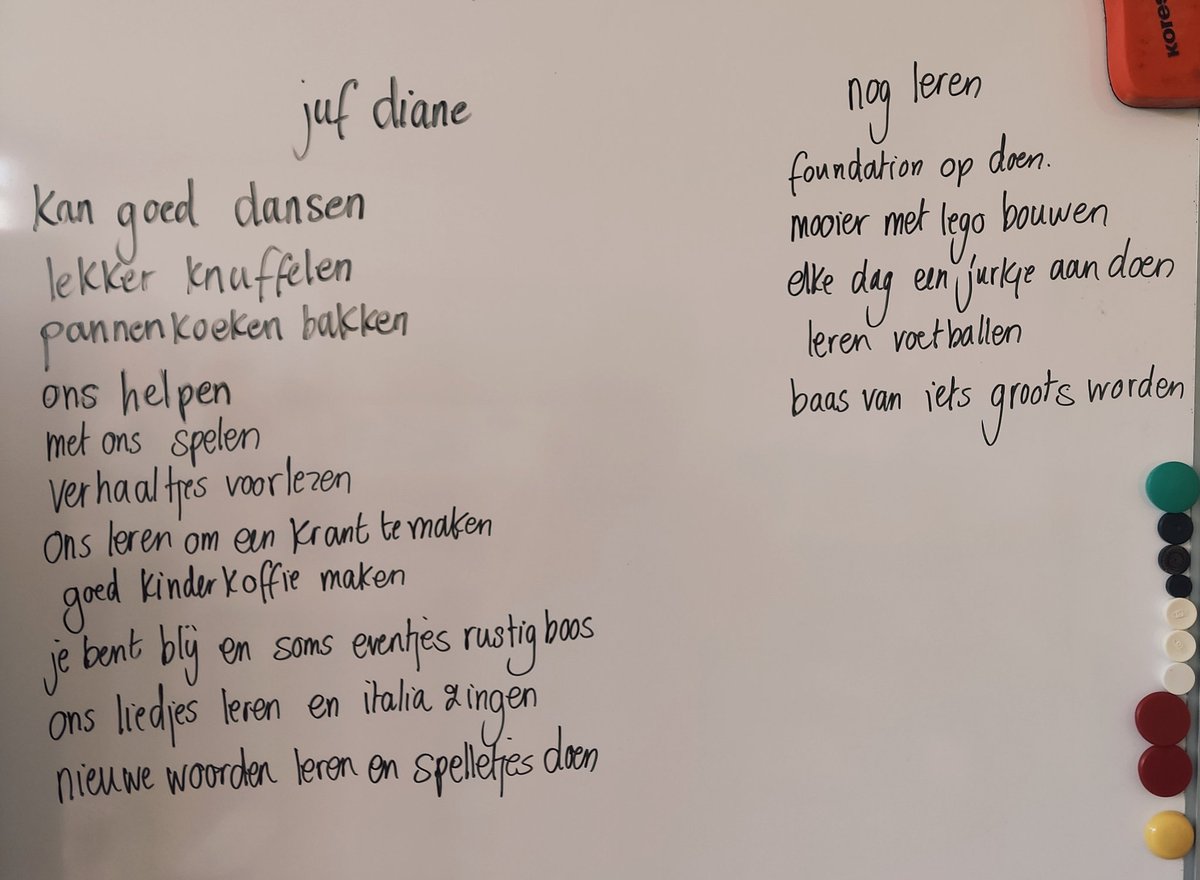 juf diane
kan goed dansen
lekker knuffelen
pannenkoeken bakken
ons helpen
met ons spelen
verhaaltjes voorlezen
ons leren om een krant te maken
goed kinderkoffie maken
je bent blij en soms eventjes rustig boos
ons liedjes leren en italia zingen
nieuwe woorden leren en spelletjes doen
nog leren
foundation op doen.
mooier met lego bouwen
elke dag een jurkje aan doen
leren voetballen
baas van iets groots worden
kores